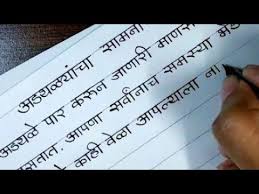 अडथळ्यांचा सामना
अडथळे पार करून जाणारी माणसं
असतात. आपणा सर्वांनाच समस्या
काही वेळा आपल्याला ना